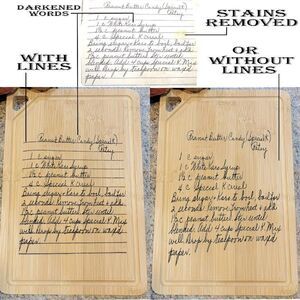 DARKENED
WORDS
STAINS
REMOVED
WITH
LINES
OR
WITHOUT
LINES
Peanut Butter Candy (Special K)
1 c sugar
1 c White Karo syrup
1½ c peanut butter
4 c Special K cereal
Bring sugar + Karo to boil, boil for
2 seconds. Remove from heat + add
1½ c peanut butter. Stir until
blended. Add 4 cups Special K. Mix
well. Drop by teaspoon on waxed
paper.
Peanut Butter Candy (Special K)
1 c sugar
1 c White Karo syrup
1½ c peanut butter
4 c Special K cereal
Bring sugar + Karo to boil, boil for
2 seconds. Remove from heat + add
1½ c peanut butter. Stir until
blended. Add 4 cups Special K. Mix
well. Drop by teaspoon on waxed
paper.
Peanut Butter Candy (Special K)
1 c sugar
1 c White Karo syrup
1½ c peanut butter
4 c Special K cereal
Bring sugar + Karo to boil, boil for
2 seconds. Remove from heat + add
1½ c peanut butter. Stir until
blended. Add 4 cups Special K. Mix
well. Drop by teaspoon on waxed
paper.